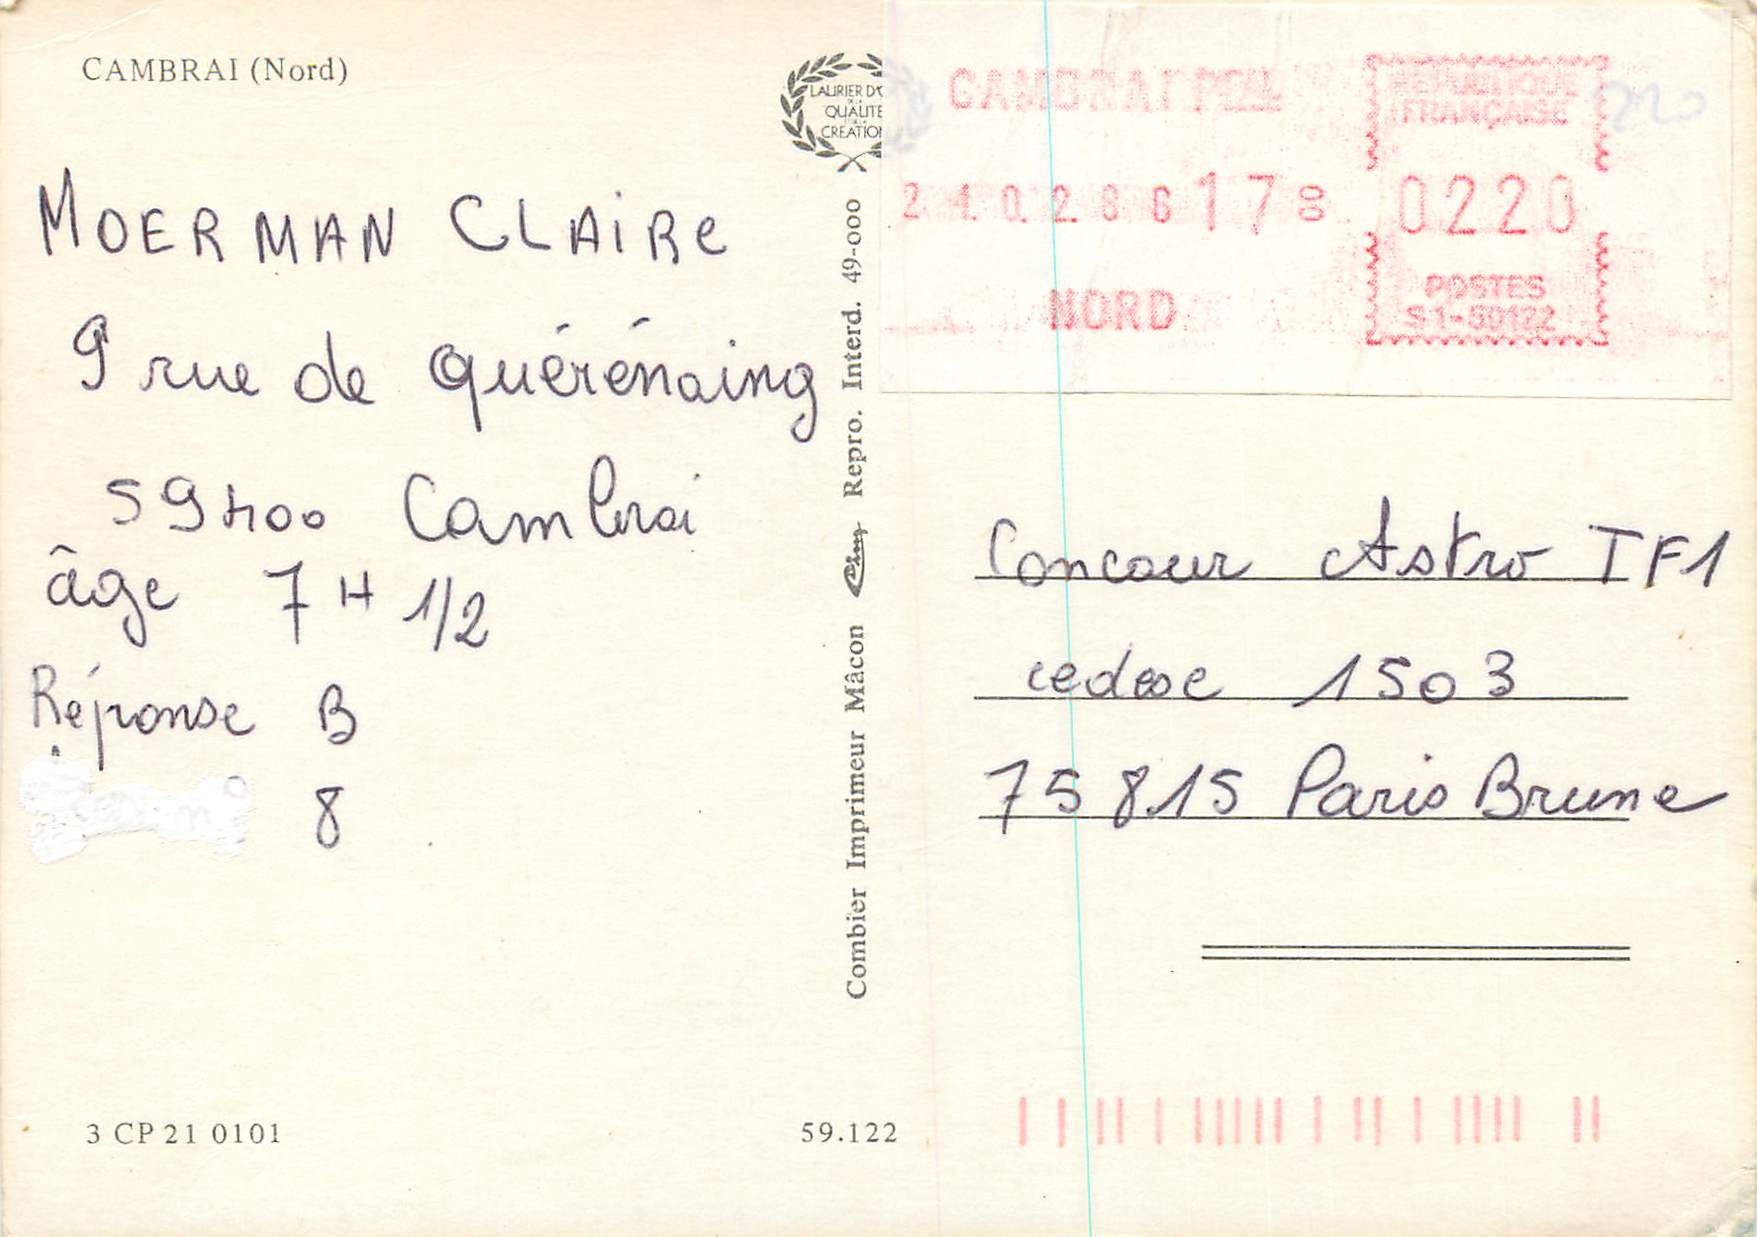 CAMBRAI (Nord)
MOERMAN CLAIRe
9 rue de quérénaing
59400 Cambrai
âge 7 H 1/2
Réponse B
n° 8
3 CP 21 0101
59.122
LAURIER D'O
DE LA
QUALITE
CREATIO
Combier Imprimeur Mâcon Repro. Interd. 49-000
CAMBRAI PPAL
24.02.86 17 00
NORD
REPUBLIQUE
FRANÇAISE
0220
POSTES
S1-59122
220
Concour Astro TF1
cedex 1503
75815 Paris Brune